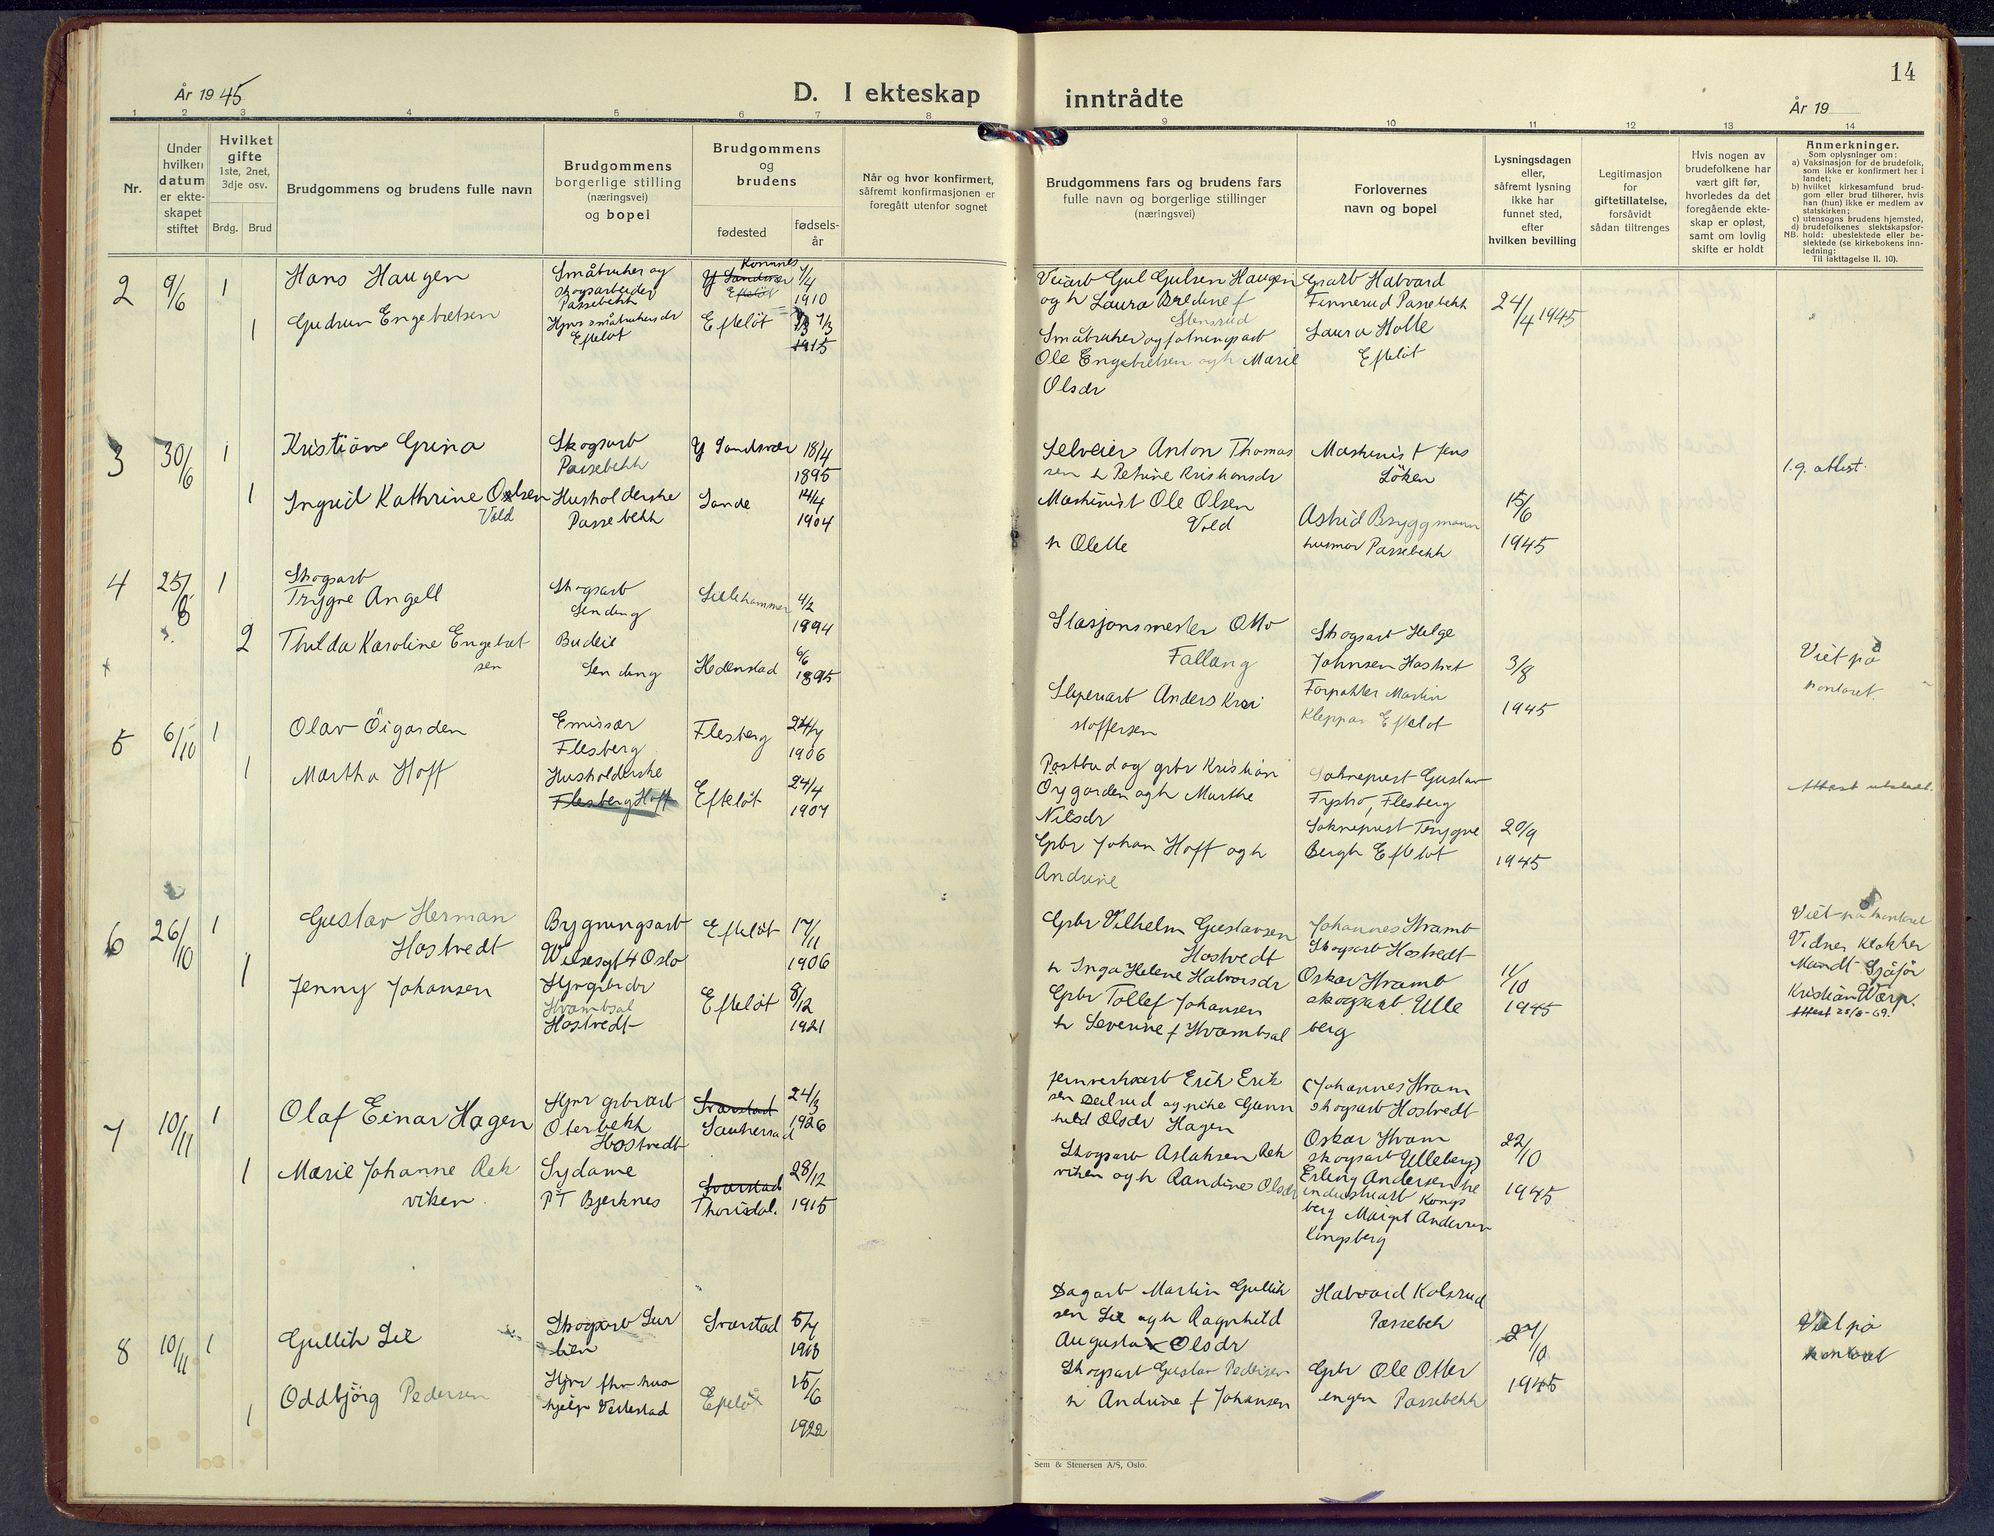 14
År 1945
D. I ekteskap inntrådte
År 19
1 2 3 4 5 6 7 8 9 10 11 12 13 14
Nr.
Under hvilken datum er ekteskapet stiftet
Hvilket gifte
1ste, 2net, 3dje osv.
Brdg. Brud
Brudgommens og brudens fulle navn
Brudgommens borgerlige stilling (næringsvei) og bopel
Brudgommens og brudens
fødested
fødselsår
Når og hvor konfirmert, såfremt konfirmasjonen er foregått utenfor sognet
Brudgommens fars og brudens fars fulle navn og borgerlige stillinger (næringsvei)
Forlovernes navn og bopel
Lysningsdagen eller, såfremt lysning ikke har funnet sted, efter hvilken bevilling
Legitimasjon for giftetillatelse, forsåvidt sådan tiltrenges
Hvis nogen av brudefolkene har vært gift før, hvorledes da det foregående ekteskap er opløst, samt om lovlig skifte er holdt
Anmerkninger.
Som oplysninger om:
a) Vaksinasjon for de brudefolk, som ikke er konfirmert her i landet;
b) hvilket kirkesamfund brudgom eller brud tilhører, hvis han (hun) ikke er medlem av statskirken;
c) utensogns brudens hjemsted,
d) brudefolkenes slektskapsforhold: ubeslektede eller beslektede (se kirkebokens innledning;
NB. Til iakttagelse II. 10).
2 9/6 1
Hans Haugen
Småbruker og
skogsarbeider
Passebekk
Komnes
Y Sandsvær
Efteløt
7/4
1910
Veiarb Gul Gulsen Haugen
og h Laura Bredine f
Stensrud
Grarb Halvard
Finnerud Passebekk
24/4 1945
1
Gudrun Engebretsen
Hjvr småbrukersdr
Efteløt
Efteløt
1/3
1915
Småbruker og fatningsarb
Ole Engebretsen og h Marie
Olsdr
Laura Holte
Efteløt
3 30/6 1
Kristian Grina
Skogsarb
Passebekk
Y Sandsvær
18/4
1895
Selveier Anton Thomas
sen h Petrine Kristiansdr
Maskinist Jens
Löken
1.g. attest.
1
Ingrid Kathrine Olsen
Vold
Husholderske
Passebekk
Sande
14/4
1904
Maskinist Ole Olsen
Vold
h Olette
Astrid Bryggmann
husmor Passebekk
15/6
1945
4 25/8 1
Skogsarb
Trygve Angell
Skogsarb
Sending
Lillehammer
4/2
1894
Stasjonsmester Otto
Fallang
Skogsarb Helge
Johnsen Hostvet
3/8
1945
Viet på
kontoret
2
Thilda Karoline Engebret
sen
Budeie
Sending
Hedenstad
6/6
1895
Sliperiarb Anders Kri
stoffersen
Forpakter Martin
Kleppan Efteløt
5 6/10 1
Olav Öigarden
Emissær
Flesberg
Flesberg
24/7
1906
Postbud og grbr Kristian
Öygarden og h Marthe
Nilsdr
Sokneprest Gustav
Frysho, Flesberg
20/9
1945
Attest utstedt.
1
Martha Hoff
Husholderske
Flesberg Hoff
Efteløt
24/4
1907
Grbr Johan Hoff og h
Andrine
Sokneprest Trygve
Bergh Efteløt
6 26/10 1
Gustav Herman
Hostvedt
Bygningsarb
Wilsesgt 4 Oslo
Efteløt
17/11
1906
Grbr Vilhelm Gustavsen
Hostvedt
h Inga Helene Halvorsdr
Johannes Hvamb
Skogsarb Hostvedt
11/10
1945
Viet på kontoret
Vidner Klokker
Mandt Sjåfør
Kristian Wærp.
Attest 25/8-69.
1
Jenny Johansen
Hjvr grbrdr
Hvambsal
Hostvedt
Efteløt
8/12
1921
Grbr Tollef Johansen
h Severine f Hvambsal
Oskar Hvamb
skogsarb. Ulle
berg
7 10/11 1
Olaf Einar Hagen
Hjvr grbrarb
Oterbekk
Hostvedt
Svarstad
Sauherad
24/3
1926
Jernverksarb Erik Erik
sen Deilrud og pike Gunn
hild Olsdr Hagen
(Johannes Hvam
skogsarb Hostvedt
Oskar Hvam
skogsarb Ulleberg)
22/10
1945
1
Marie Johanne Rek
viken
Sydame
PT Bjerknes
Svarstad
Thorsdal.
28/12
1915
Skogsarb Aslaksen Rek
viken og h Randine Olsdr
Erling Andersen
industriarb Kongs
berg Margit Andersen
Kongsberg
8 10/11 1
Gullik Lie
Skogsarb Sur
lien
Svarstad
5/7
1913
Dagarb Martin Gullik
sen Lie og h Ragnhild
Augusta Olsdr
Halvard Kolsrud
Passebek
27/10
1945
Viet på
kontoret
1
Oddbjörg Pedersen
Hjvr fhv hus
hjelp Vestestad
Efteløt
15/6
1922
Skogsarb Gustav Pedersen
h Andrine f Johansen
Grbr Ole Otter
engen Passebekk
Sem & Stenersen A/S, Oslo.